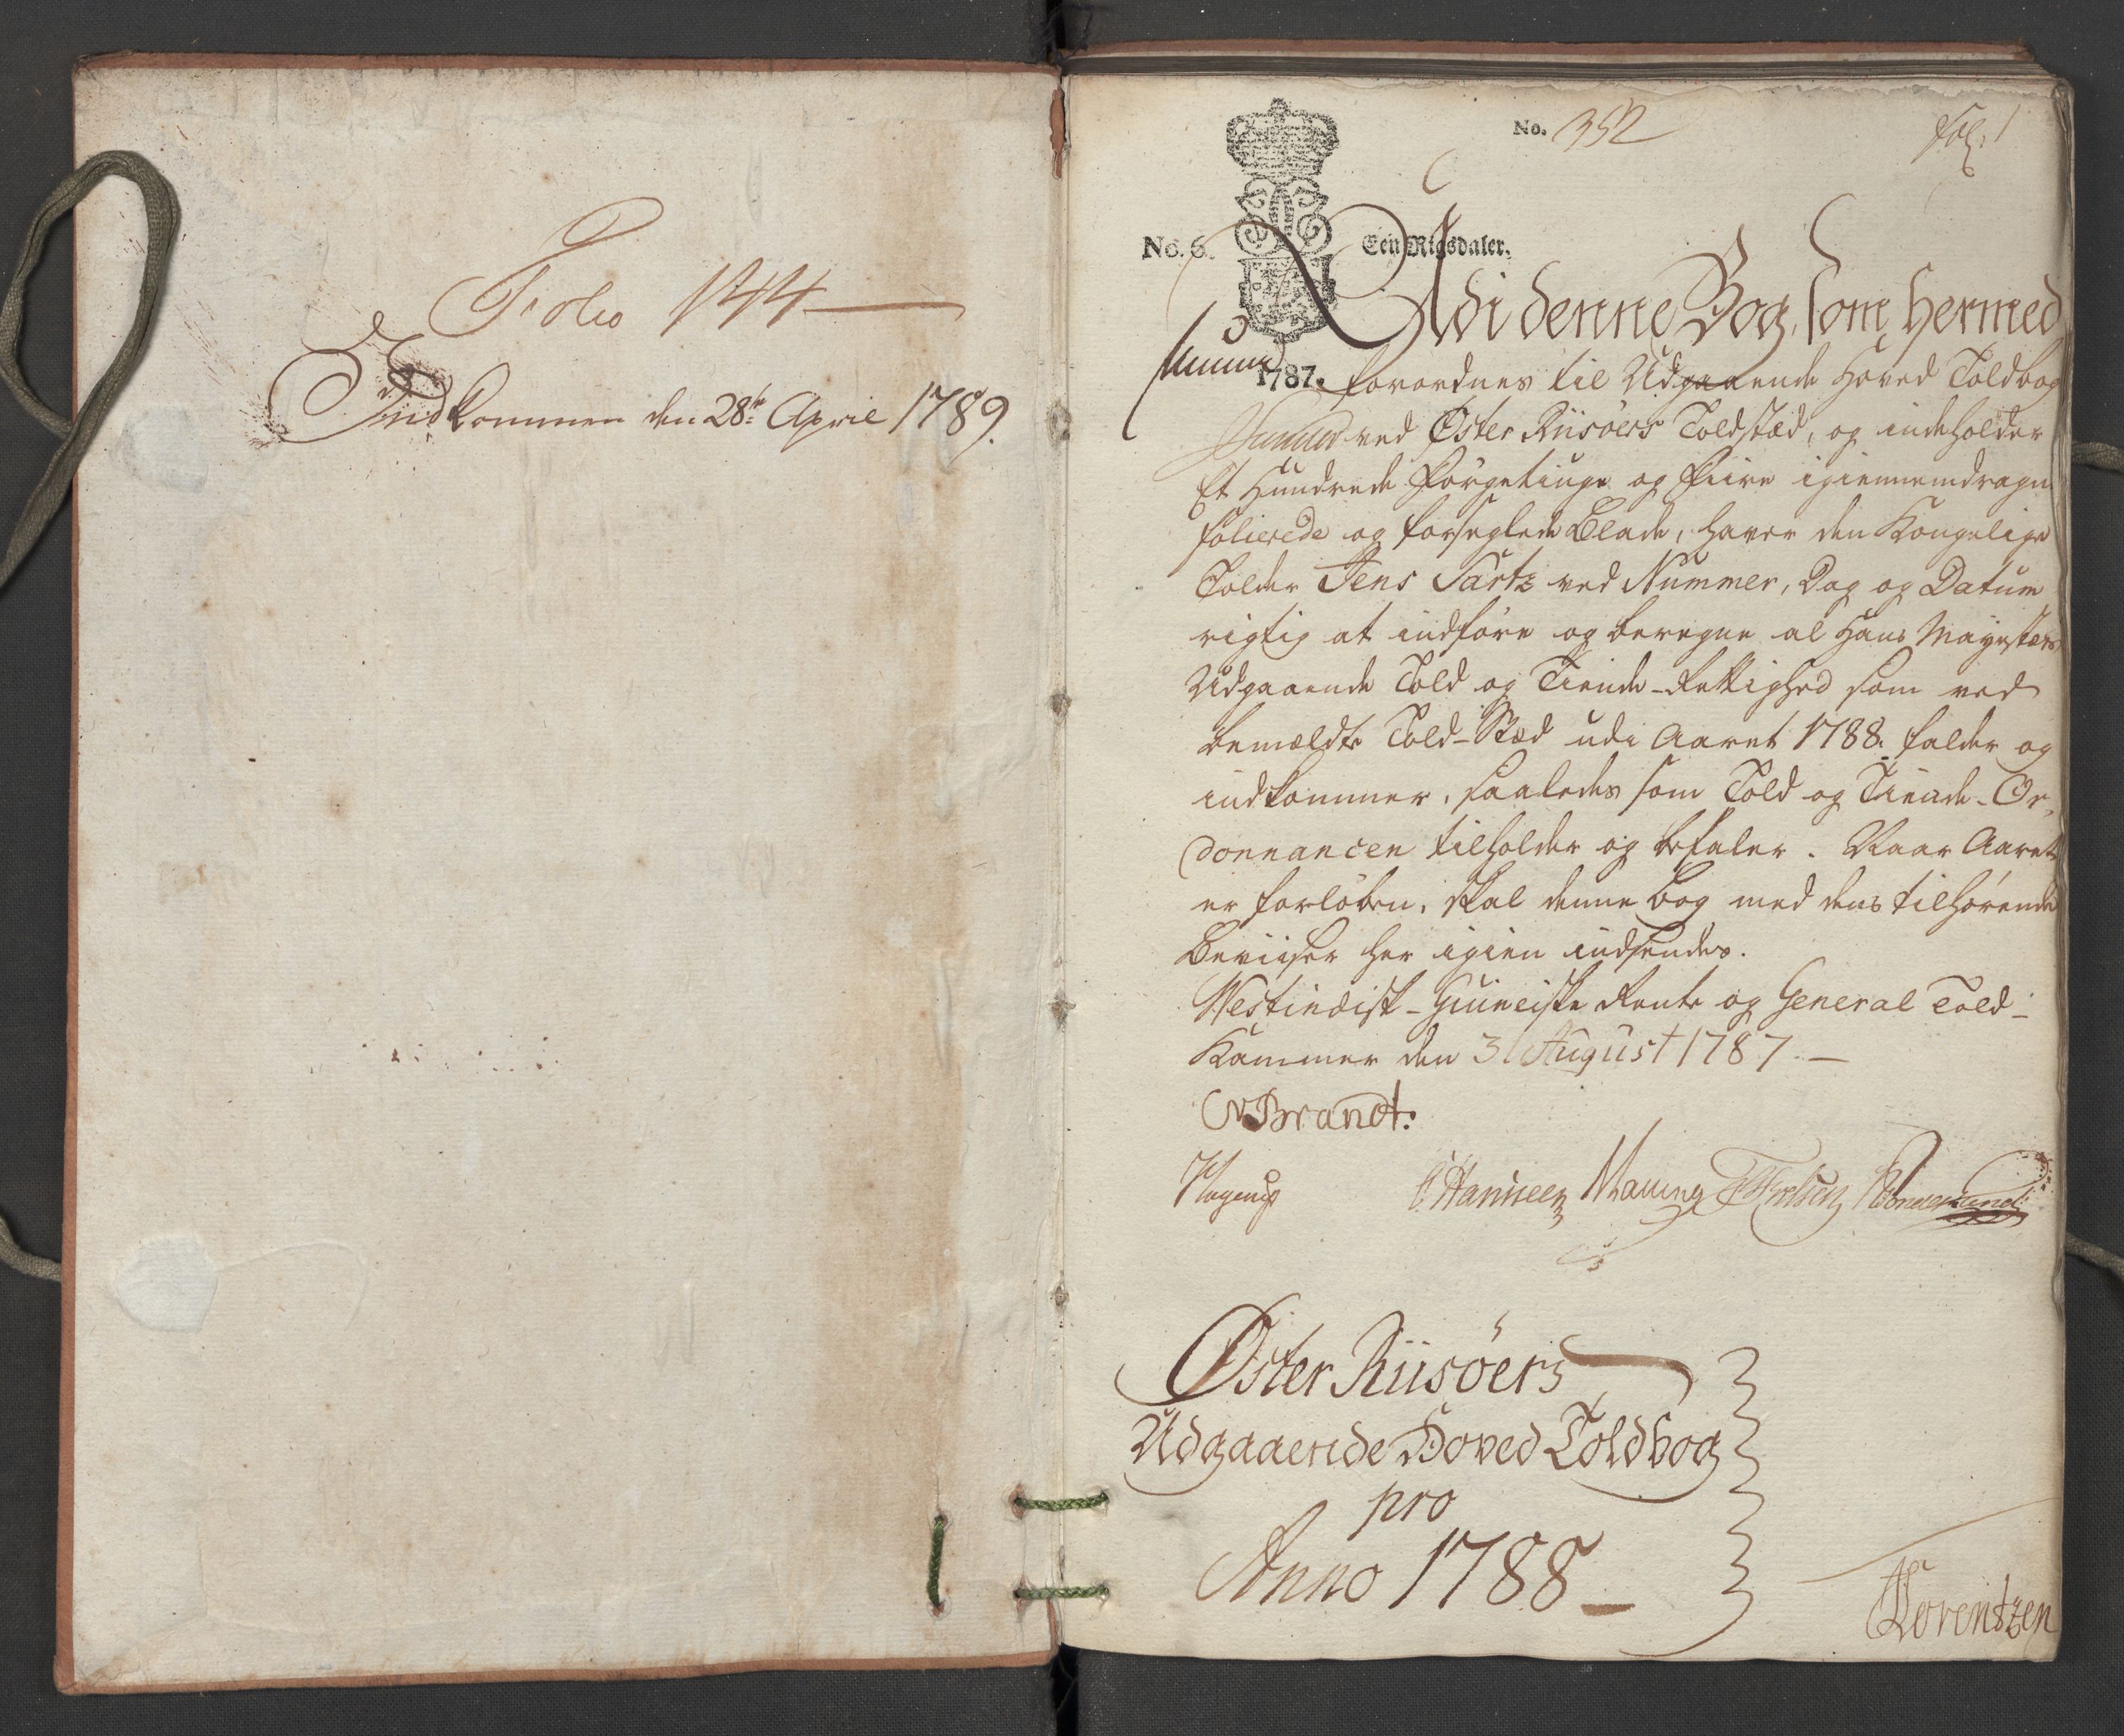 Folio 144
Indkommen den 28de April 1789.
No. 352
Fol: 1
No. 6. Een Rigsdaler.
Udi denne Bog, som hermed
1787. forordnes til Udgaaende Hoved Toldbog
ved Øster Riisöers Toldstæd, og indeholder
Et Hundrede Förgetiuge og Fiire igiennemdragne
folierede og forseglede Blade, haver den Kongelige
Tolder Jens Sartz ved Nummer, Dag og Datum
rigtig at indföre og beregne al Hans Mayestæts
Udgaaende Told og Tiende-Rettighed som ved
bemældte Told-Stæd udi Aaret 1788. falder og
indkommer, saaledes som Told og Tiende-Or-
donnancen tilholder og befaler. Naar Aaret
er forlöben, skal denne Bog med dens tilhörende
Beviiser her igien indsendes.
Westindisk-Guineiske Rente og General Told-
Kammer den 31 August 1787.
Brandt.
Øster Riisöers
Udgaaende Hoved Toldbog
pro
Anno 1788
Lorentzen